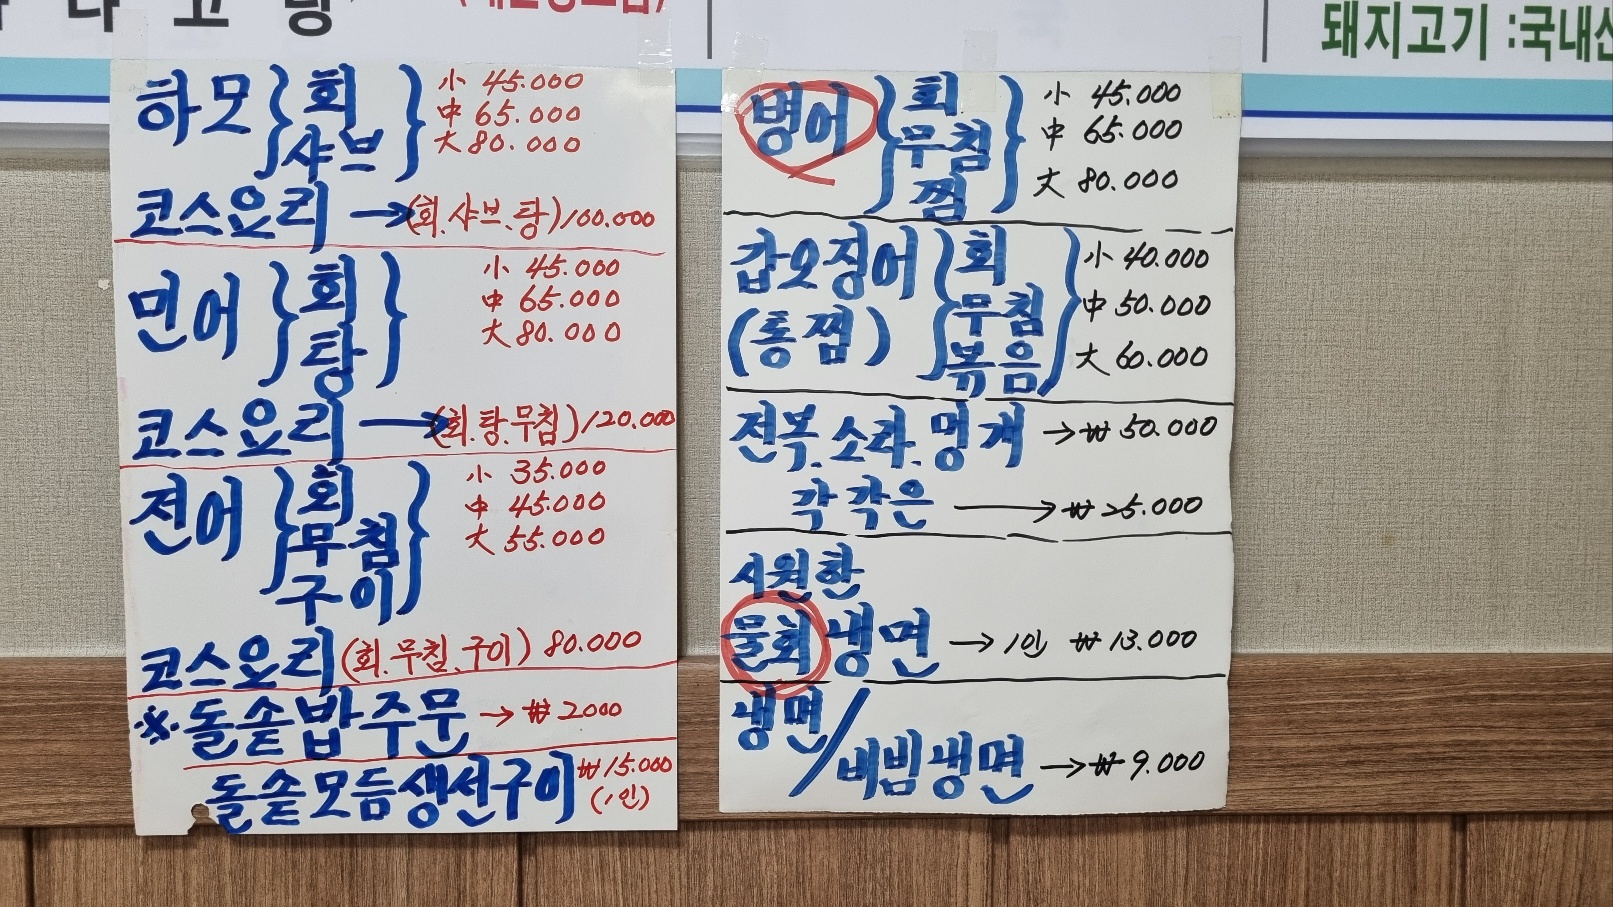 돼지고기 : 국내산
하모 } 회 샤브 } 小 45.000
中 65.000
大 80.000
코스요리 → (회.샤브.탕) 100.000
민어 } 회 탕 } 小 45.000
中 65.000
大 80.000
코스요리 → (회.탕.무침) 120.000
전어 } 회 무침 구이 } 小 35.000
中 45.000
大 55.000
코스요리 (회.무침.구이) 80.000
※ 돌솥밥 주문 → ₩ 2000
돌솥모듬생선구이 ₩15.000
(1인)
병어 } 회 무침 찜 } 小 45.000
中 65.000
大 80.000
갑오징어 (통찜) } 회 무침 볶음 } 小 40.000
中 50.000
大 60.000
전복.소라.멍게 → ₩ 50.000
각각은 → ₩ 25.000
시원한
물회 냉면 → 1인 ₩ 13.000
냉면 /
비빔냉면 → ₩ 9.000